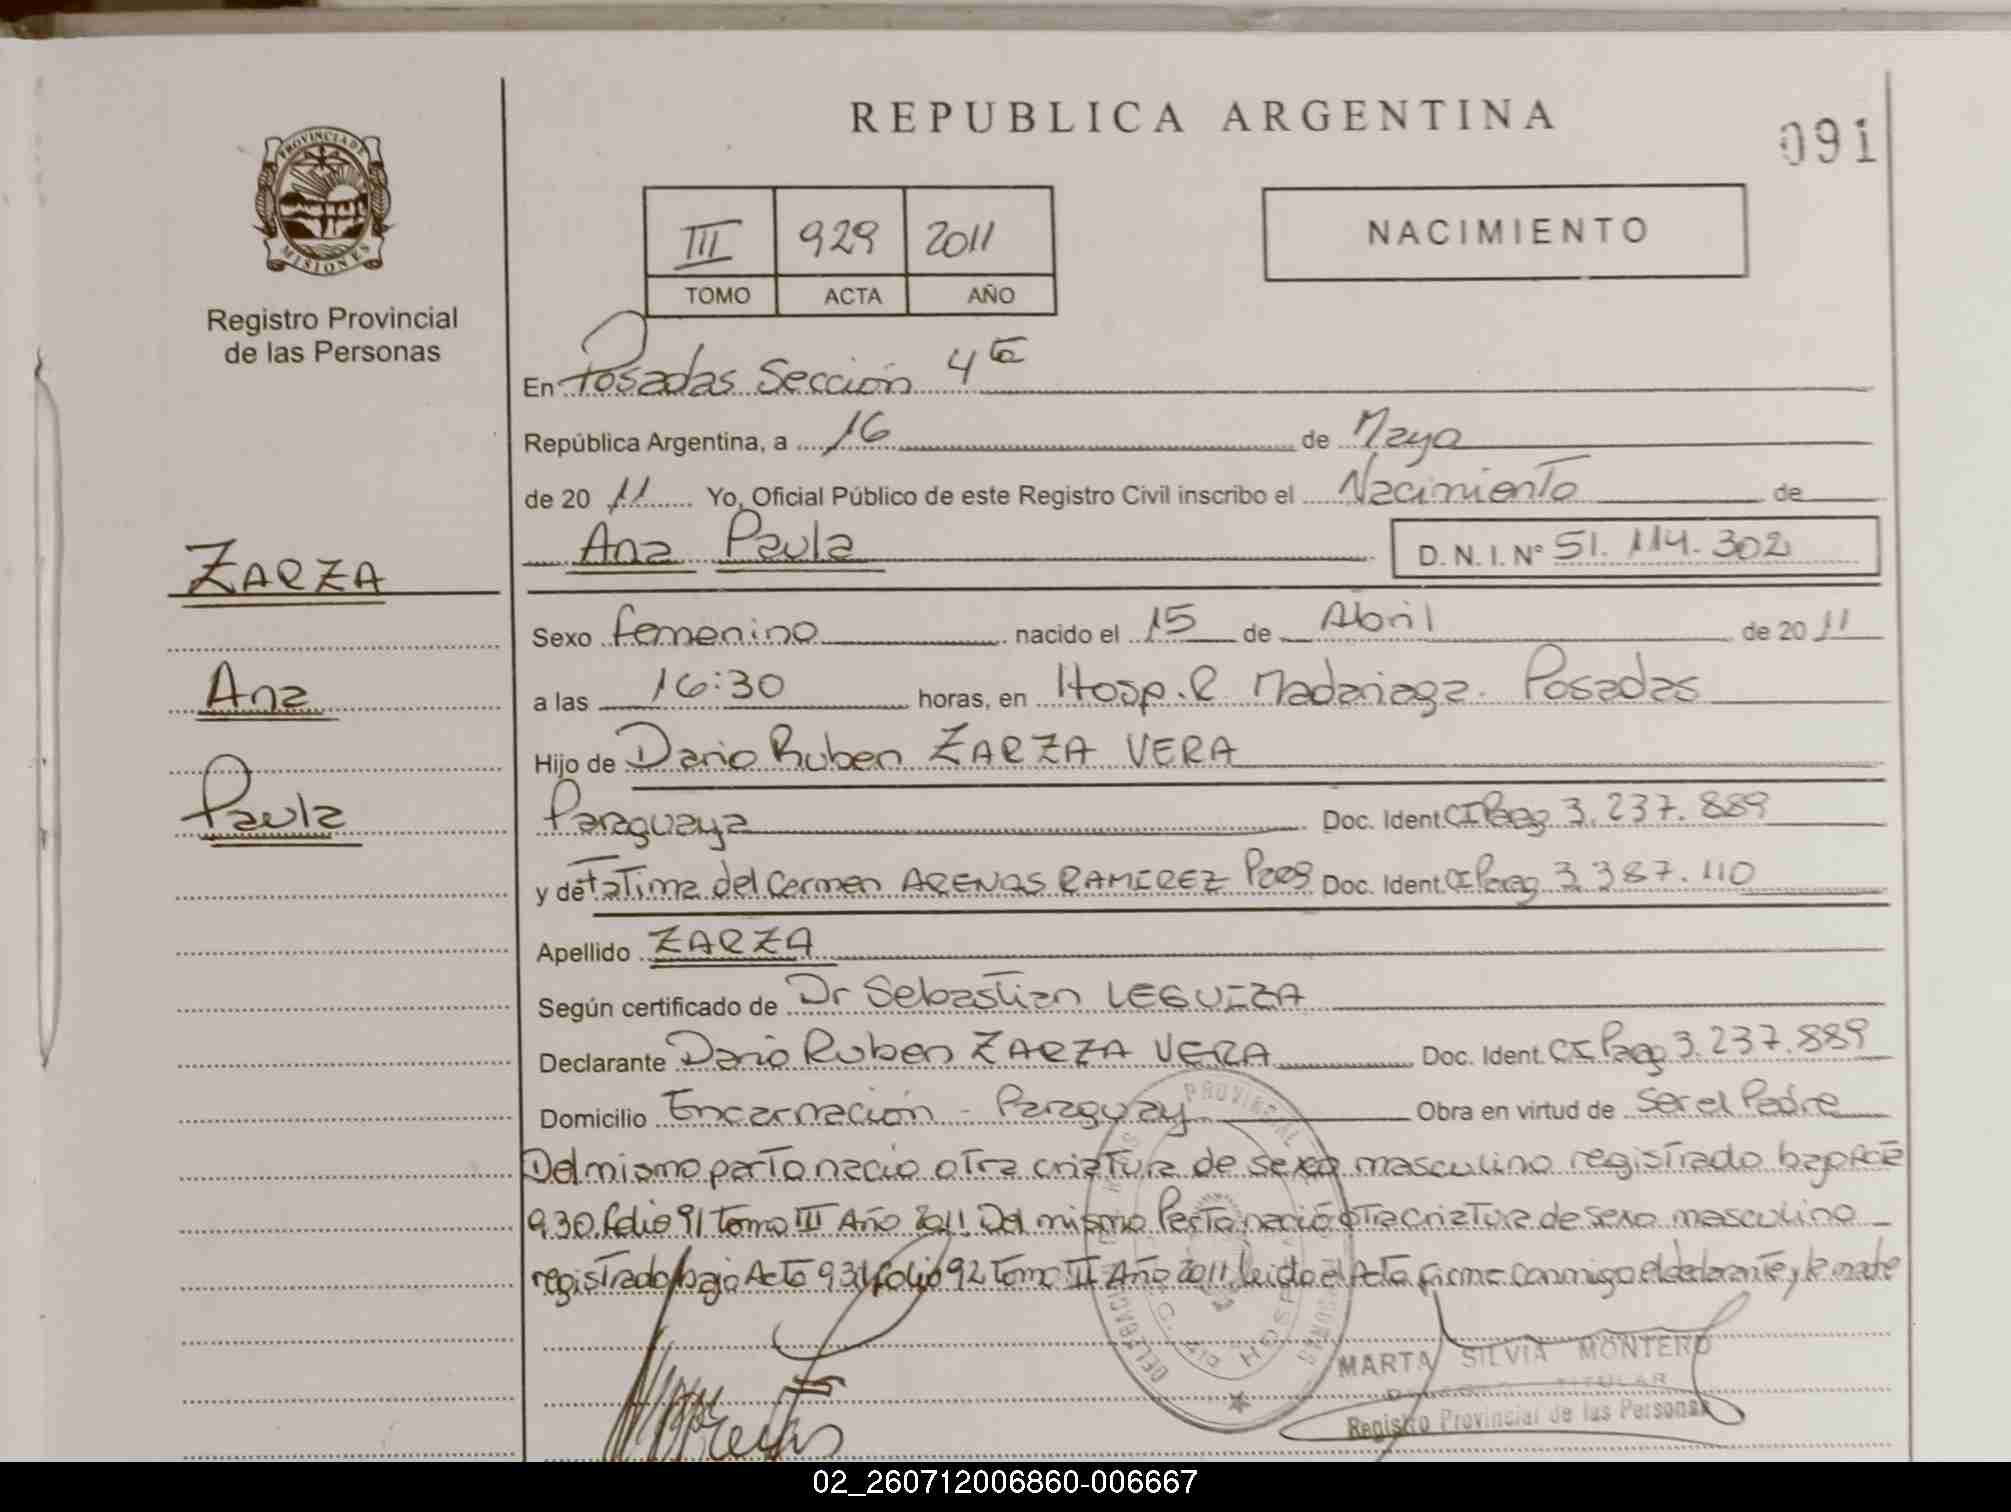 PROVINCIA DE
MISIONES
Registro Provincial
de las Personas
REPUBLICA ARGENTINA
091
III 929 2011
TOMO ACTA AÑO
NACIMIENTO
En Posadas Sección 4ta
República Argentina, a 16 de Mayo
de 20 11 Yo, Oficial Público de este Registro Civil inscribo el Nacimiento de
Ana Paula D. N. I. Nº 51.114.302
ZARZA
Ana
Paula
Sexo femenino nacido el 15 de Abril de 20 11
a las 16:30 horas, en Hosp. R. Madariaga. Posadas
Hijo de Dario Ruben ZARZA VERA
Paraguaya Doc. Ident CI Parag 3.237.889
y de Fatima del Carmen ARENAS RAMIREZ Parg Doc. Ident CI Parag 3.387.110
Apellido ZARZA
Según certificado de Dr Sebastian LEGUIZA
Declarante Dario Ruben ZARZA VERA Doc. Ident. CI Parag 3.237.889
Domicilio Encarnación - Paraguay Obra en virtud de ser el Padre
Del mismo parto nacio otra criatura de sexo masculino registrado bajo Acta
930. folio 91 Tomo III Año 2011. Del mismo Parto nació otra criatura de sexo masculino
registrado bajo Acta 931 folio 92 Tomo III Año 2011 Leida el Acta firma conmigo el declarante y la madre
MARTA SILVIA MONTERO
TITULAR
Registro Provincial de las Personas
02_260712006860-006667